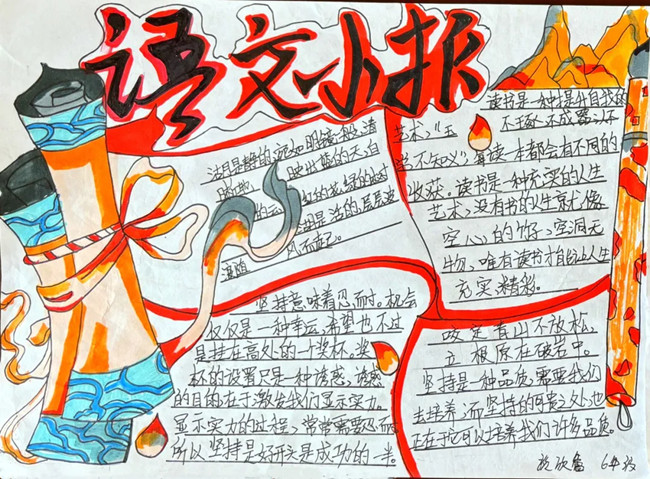 语文小报
湖是静的,宛如明镜一般,清
晰地映出蓝的天,白
的云,红的花,绿的树
湖是活的,层层波
随风而起。
读书是一种提升自我的
艺术,“玉不琢不成器,人不
学不知义”。每读一本都会有不同的
收获。读书是一种充实的人生
艺术,没有书的人生就像
空心的竹子,空洞无
物,唯有读书才能让人生
充实精彩。
坚持意味着忍耐。机会
仅仅是一种幸运,希望也不过
是挂在高处的一个奖杯。奖
杯的设置只是一种诱惑,诱惑
的目的在于激发我们显示实力。
显示实力的过程,常常需要忍耐
所以坚持是好开头是成功的一半。
咬定青山不放松,
立根原在破岩中。
坚持是一种品质,需要我们
去培养,而坚持的可贵之处,也
正在于它可以培养我们许多品质。